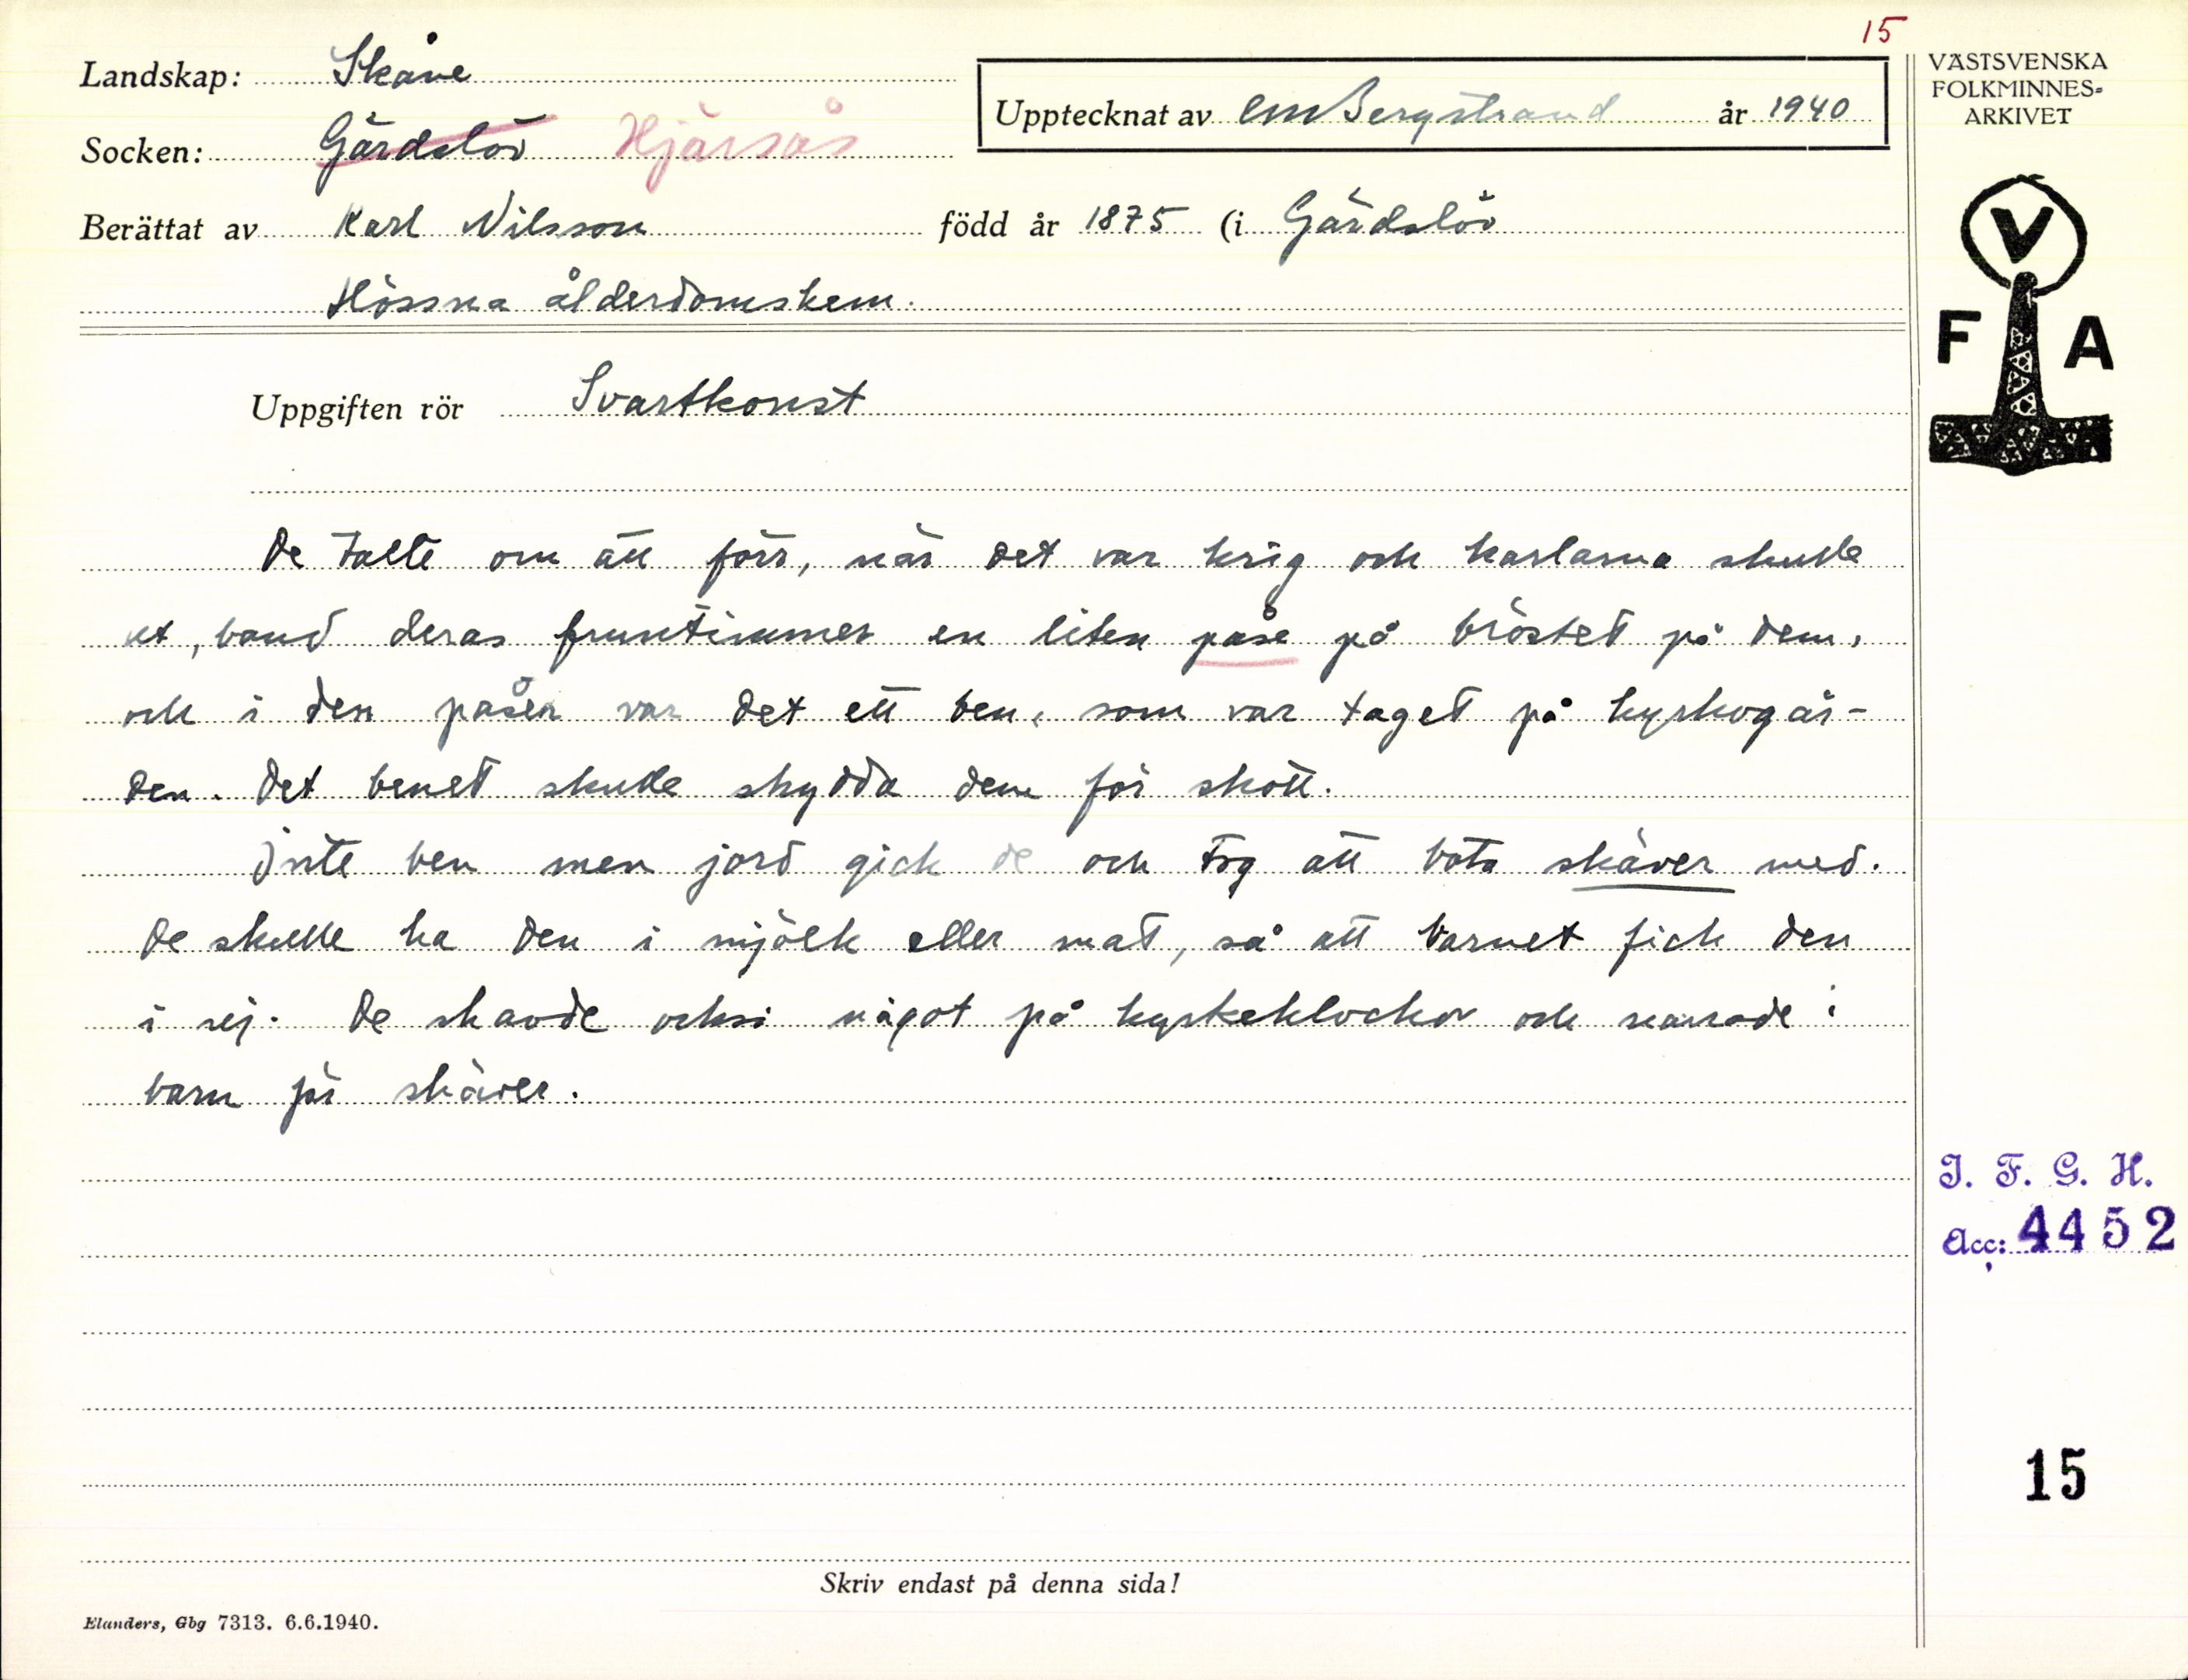 15
Landskap: Skåne
Socken: Gärdslöv Hjärsås
Upptecknat av CM Bergstrand år 1940
VÄSTSVENSKA
FOLKMINNES-
ARKIVET
Berättat av Karl Nilsson född år 1875 (i Gärdslöv
Hössna ålderdomshem.
V
F A
Uppgiften rör Svartkonst
De talte om att förr, när det var krig och karlarna skulle
ut, band deras fruntimmer en liten påse på bröstet på dem,
och i den påsen var det ett ben, som var taget på kyrkogår-
den. Det benet skulle skydda dem för skott.
Inte ben men jord gick de och tog att bota skäver med.
De skulle ha den i mjölk eller mat, så att barnet fick den
i sej. De skavde också något på kyrkeklockor och narrade i
barn för skäver.
I. F. G. H.
Acc: 4452
15
Skriv endast på denna sida!
Elanders, Gbg 7313. 6.6.1940.